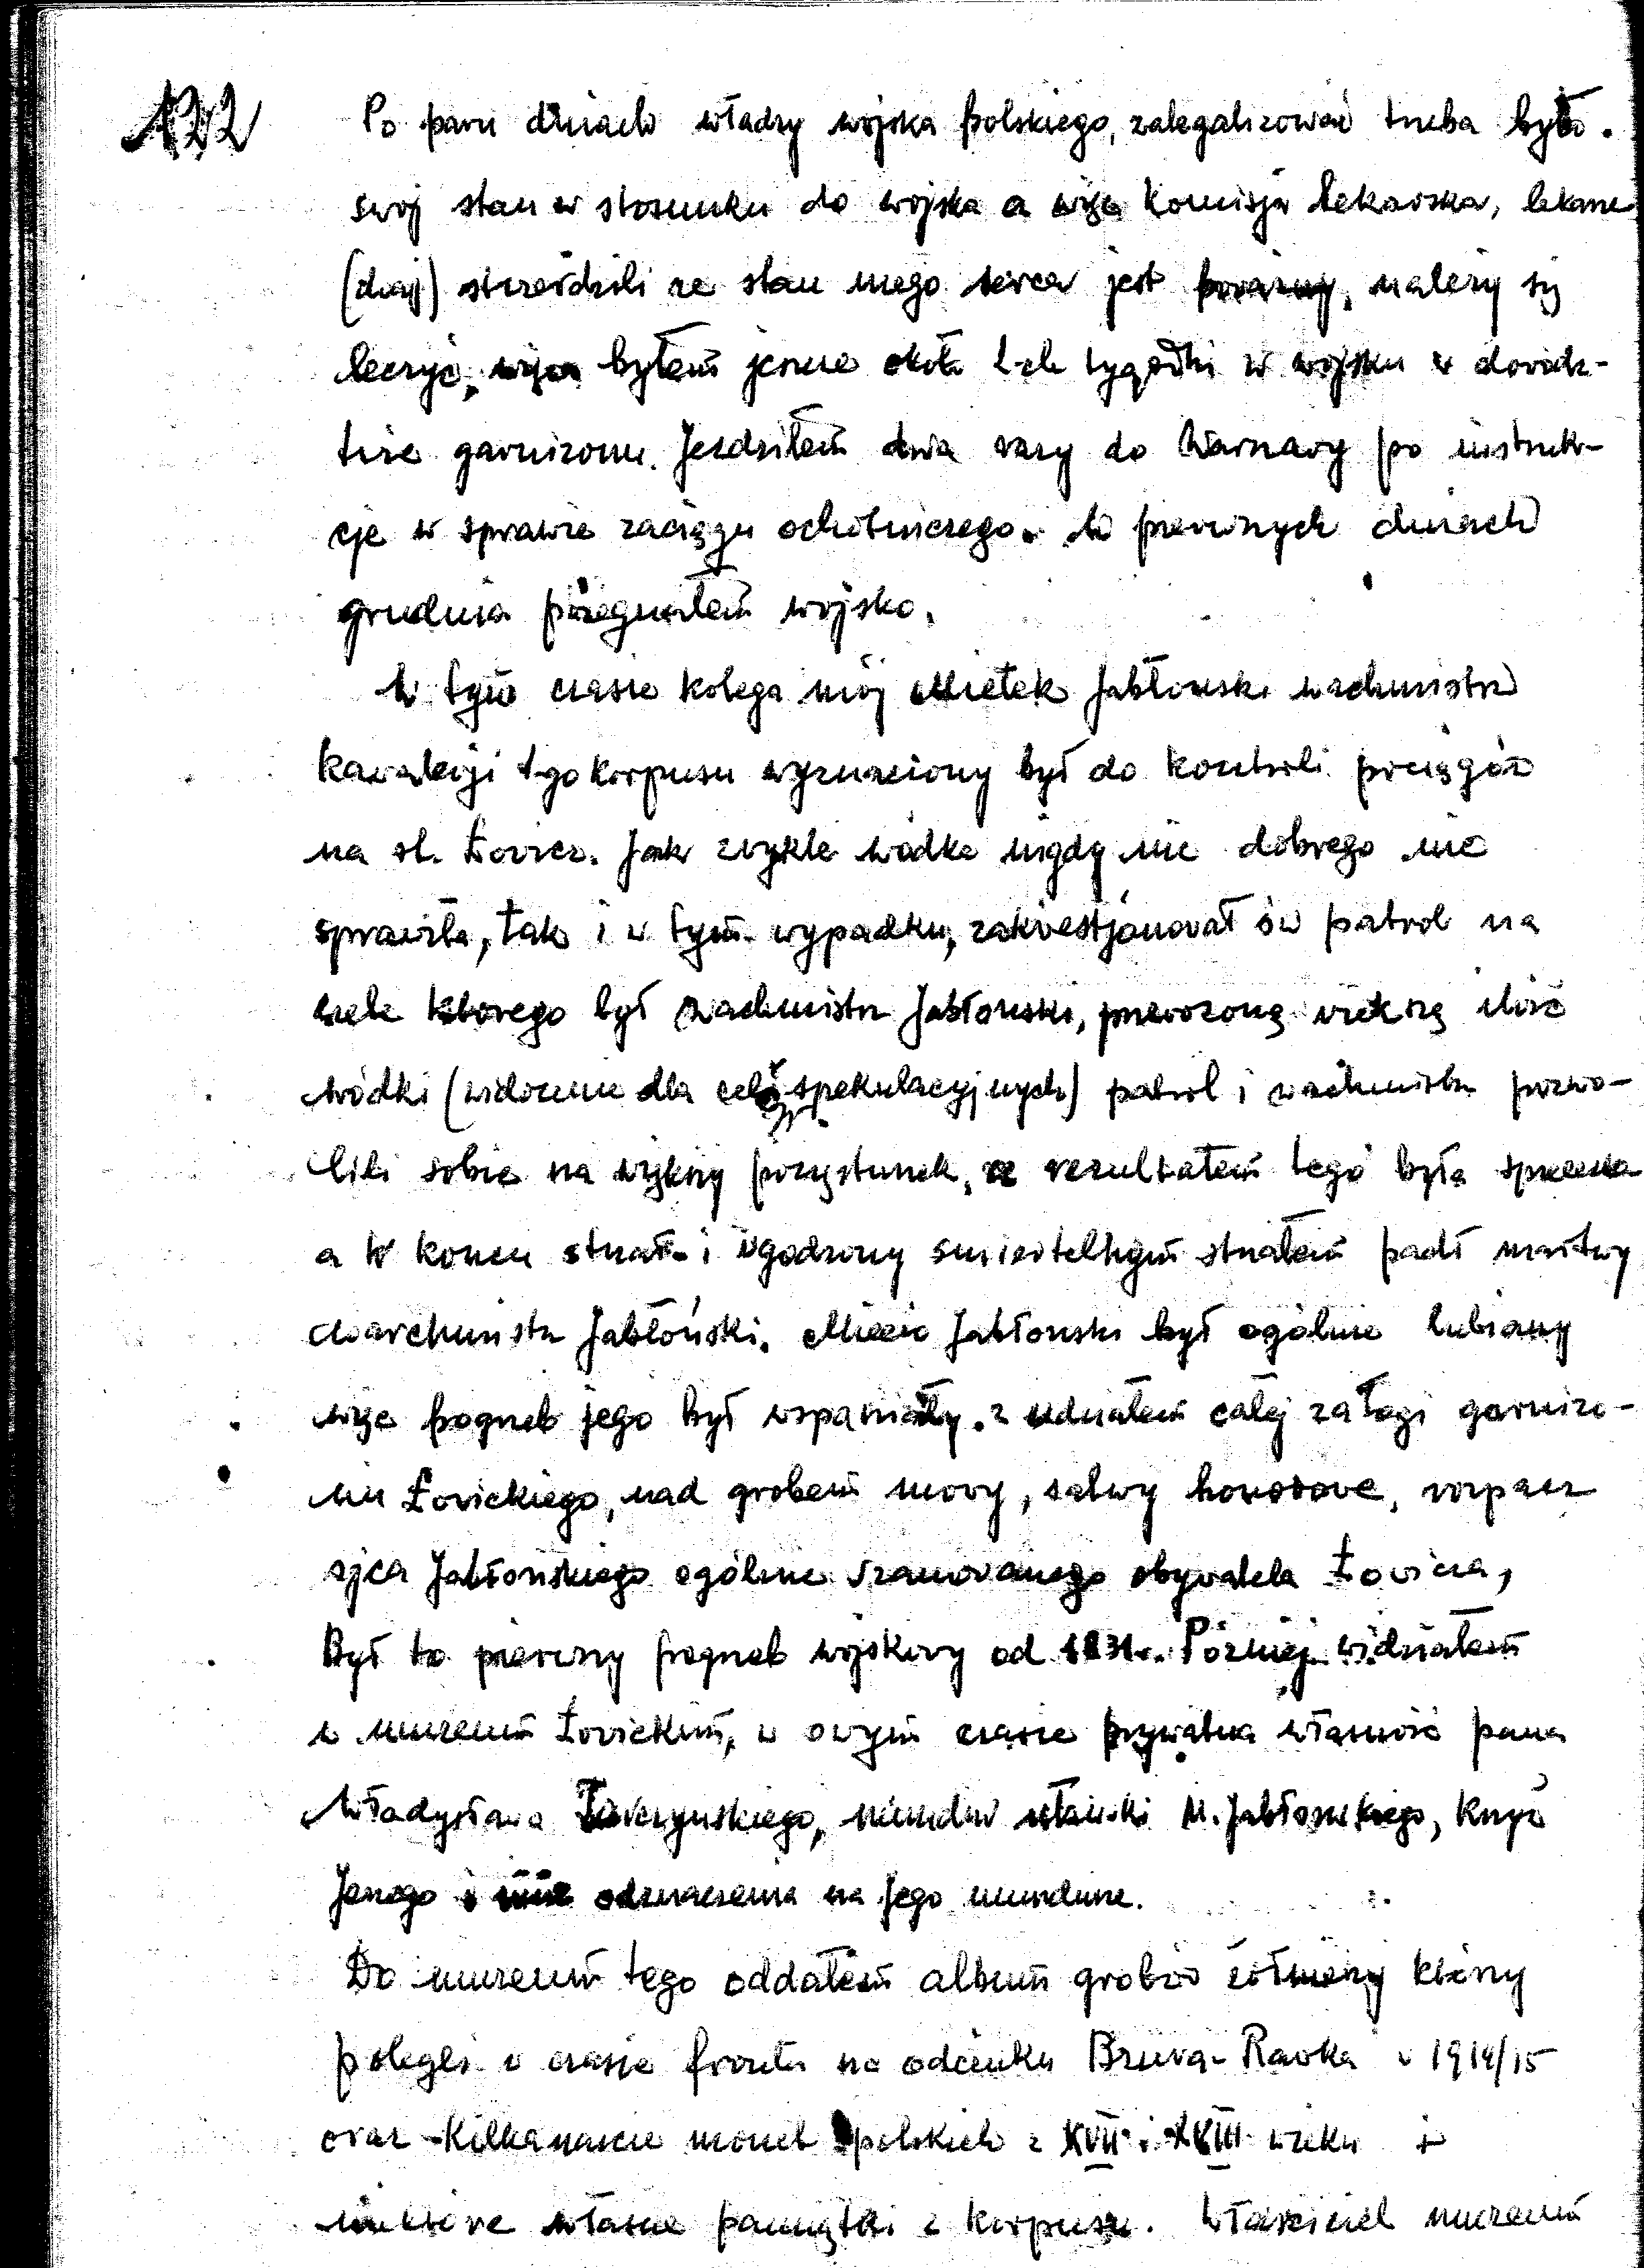 122
Po paru dniach władzy wojska polskiego, zalegalizować trzeba było.
swój stan w stosunku do wojska a więc Komisja lekarska, lekarze
(dwaj) stwierdzili że stan mego serca jest poważny, należy się
leczyć, więc byłem jeszcze około 2-ch tygodni w wojsku w dowódz-
twie garnizonu. Jeździłem dwa razy do Warszawy po instruk-
cje w sprawie zaciągu ochotniczego. W pierwszych dniach
grudnia pożegnałem wojsko.
W tym czasie kolega mój Mietek Jabłoński wachmistrz
kawalerji 1-go korpusu wyznaczony był do kontroli pociągów
na st. Łowicz. Jak zwykle wódka nigdy nic dobrego nie
sprawiła, tak i w tym wypadku, zakwestjonował ów patrol na
czele którego był wachmistrz Jabłoński, przewożoną większą ilość
wódki (widocznie dla celów spekulacyjnych) patrol i wachmistrz pozwo-
lili sobie na większy poczęstunek, że rezultatem tego była sprzeczka
a w końcu strzał i ugodzony śmiertelnym strzałem padł martwy
wachmistrz Jabłoński. Miecio Jabłoński był ogólnie lubiany
więc pogrzeb jego był wspaniały. z udziałem całej załogi garnizo-
nu Łowickiego, nad grobem mowy, salwy honorowe, rozpacz
ojca Jabłońskiego ogólnie szanowanego obywatela Łowicza,
Był to pierwszy pogrzeb wojskowy od 1831r. Później widziałem
w muzeum Łowickim, w owym czasie prywatna własność pana
Władysława Tarczyńskiego, mundur ułański M. Jabłońskiego, Krzyż
Jerzego i inne odznaczenia na jego mundurze.
Do muzeum tego oddałem album grobów żołnierzy którzy
polegli w czasie frontu na odcinku Bzura-Rawka w 1914/15
oraz kilkanaście monet polskich z XVII i XVIII wieku i
niektóre własne pamiątki z korpusu. Właściciel muzeum